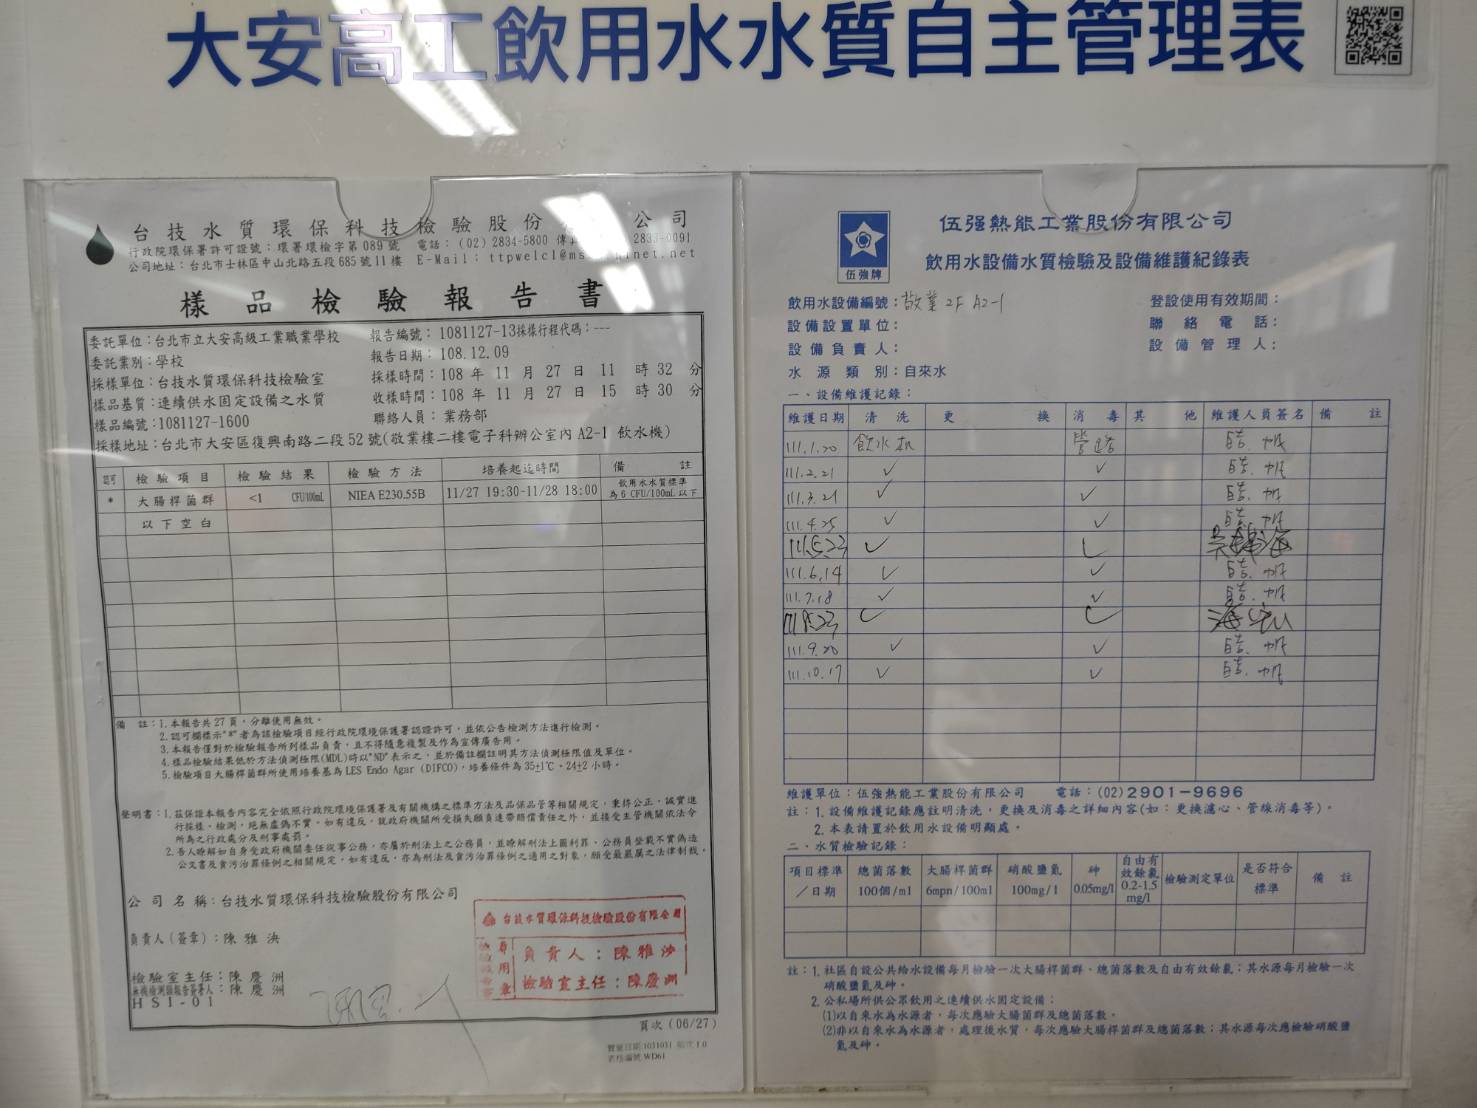 大安高工飲用水水質自主管理表
台技水質環保科技檢驗股份 公司
行政院環保署許可證號：環署環檢字第089號 電話：(02) 2834-5800
公司地址：台北市士林區中山北路五段685號11樓
樣品檢驗報告書
委託單位：台北市立大安高級工業職業學校 報告編號：1081127-13採樣行程代碼：---
委託業別：學校 報告日期：108.12.09
採樣單位：台技水質環保科技檢驗室 採樣時間：108 年 11 月 27 日 11 時 32 分
樣品基質：連續供水固定設備之水質 收樣時間：108 年 11 月 27 日 15 時 30 分
樣品編號：1081127-1600 聯絡人員：業務部
採樣地址：台北市大安區復興南路二段52號(敬業樓二樓電子科辦公室內 A2-1 飲水機)
認可 檢驗項目 檢驗結果 檢驗方法 培養起迄時間 備註
* 大腸桿菌群 <1 CFU/100mL NIEA E230.55B 11/27 19:30-11/28 18:00 飲用水水質標準為 6 CFU/100mL 以下
以下空白
備 註：1.本報告共27頁，分離使用無效。
2.認可欄標示"*"者為該檢驗項目經行政院環境保護署認證許可，並依公告檢測方法進行檢測。
3.本報告僅對於檢驗報告所列樣品負責，且不得隨意複製及作為宣傳廣告用。
4.樣品檢驗結果低於方法偵測極限(MDL)時以"ND"表示之，並於備註欄註明其方法偵測極限值及單位。
5.檢驗項目大腸桿菌群所使用培養基為 LES Endo Agar (DIFCO)，培養條件為 35±1℃，24±2 小時。
聲明書：1.茲保證本報告內容完全依照行政院環境保護署及有關機構之標準方法及品保品管等相關規定，秉持公正、誠實進
行採樣、檢測，絕無虛偽不實，如有違反，就政府機關所受損失願負連帶賠償責任之外，並接受主管機關依法令
所為之行政處分及刑事處罰。
2.吾人瞭解如自身受政府機關委任從事公務，亦屬於刑法上之公務員，並瞭解刑法上圖利罪、公務員登載不實偽造
公文書及貪污治罪條例之相關規定，如有違反，亦為刑法及貪污治罪條例之適用之對象，願受最嚴厲之法律制裁。
公司名稱：台技水質環保科技檢驗股份有限公司
負責人(簽章)：陳雅
檢驗室主任：陳慶洲
無機檢測類報告簽署人：陳慶洲
HSI-01
台技水質環保科技檢驗股份有限公司
負責人：陳雅
檢驗室主任：陳慶洲
頁次 (06/27)
表格編號:WD61
伍強牌
伍强熱能工業股份有限公司
飲用水設備水質檢驗及設備維護紀錄表
飲用水設備編號：敬業 2F A2-1 登設使用有效期間：
設備設置單位： 聯絡電話：
設備負責人： 設備管理人：
水源類別：自來水
一、設備維護記錄：
維護日期 清洗 更換 消毒 其他 維護人員簽名 備註
111.1.20 飲水机
111.2.21 ✓ ✓
111.3.21 ✓ ✓
111.4.25 ✓ ✓
111.5.23 ✓ ✓
111.6.14 ✓ ✓
111.7.18 ✓ ✓
111.8.23 ✓ ✓
111.9.20 ✓ ✓
111.10.17 ✓ ✓
維護單位：伍强熱能工業股份有限公司 電話：(02)2901-9696
註：1.設備維護記錄應註明清洗，更換及消毒之詳細內容(如：更換濾心、管線消毒等)。
2.本表請置於飲用水設備明顯處。
二、水質檢驗記錄：
項目標準／日期 總菌落數 100個/ml 大腸桿菌群 6mpn/100ml 硝酸鹽氮 100mg/l 砷 0.05mg/l 自由有效餘氯 0.2-1.5 mg/l 檢驗測定單位 是否符合標準 備註
註：1.社區自設公共給水設備每月檢驗一次大腸桿菌群、總菌落數及自由有效餘氯；其水源每月檢驗一次
硝酸鹽氮及砷。
2.公私場所供公眾飲用之連續供水固定設備：
(1)以自來水為水源者，每次應驗大腸桿菌群及總菌落數。
(2)非以自來水為水源者，處理後水質，每次應驗大腸桿菌群及總菌落數；其水源每次應檢驗硝酸鹽
氮及砷。